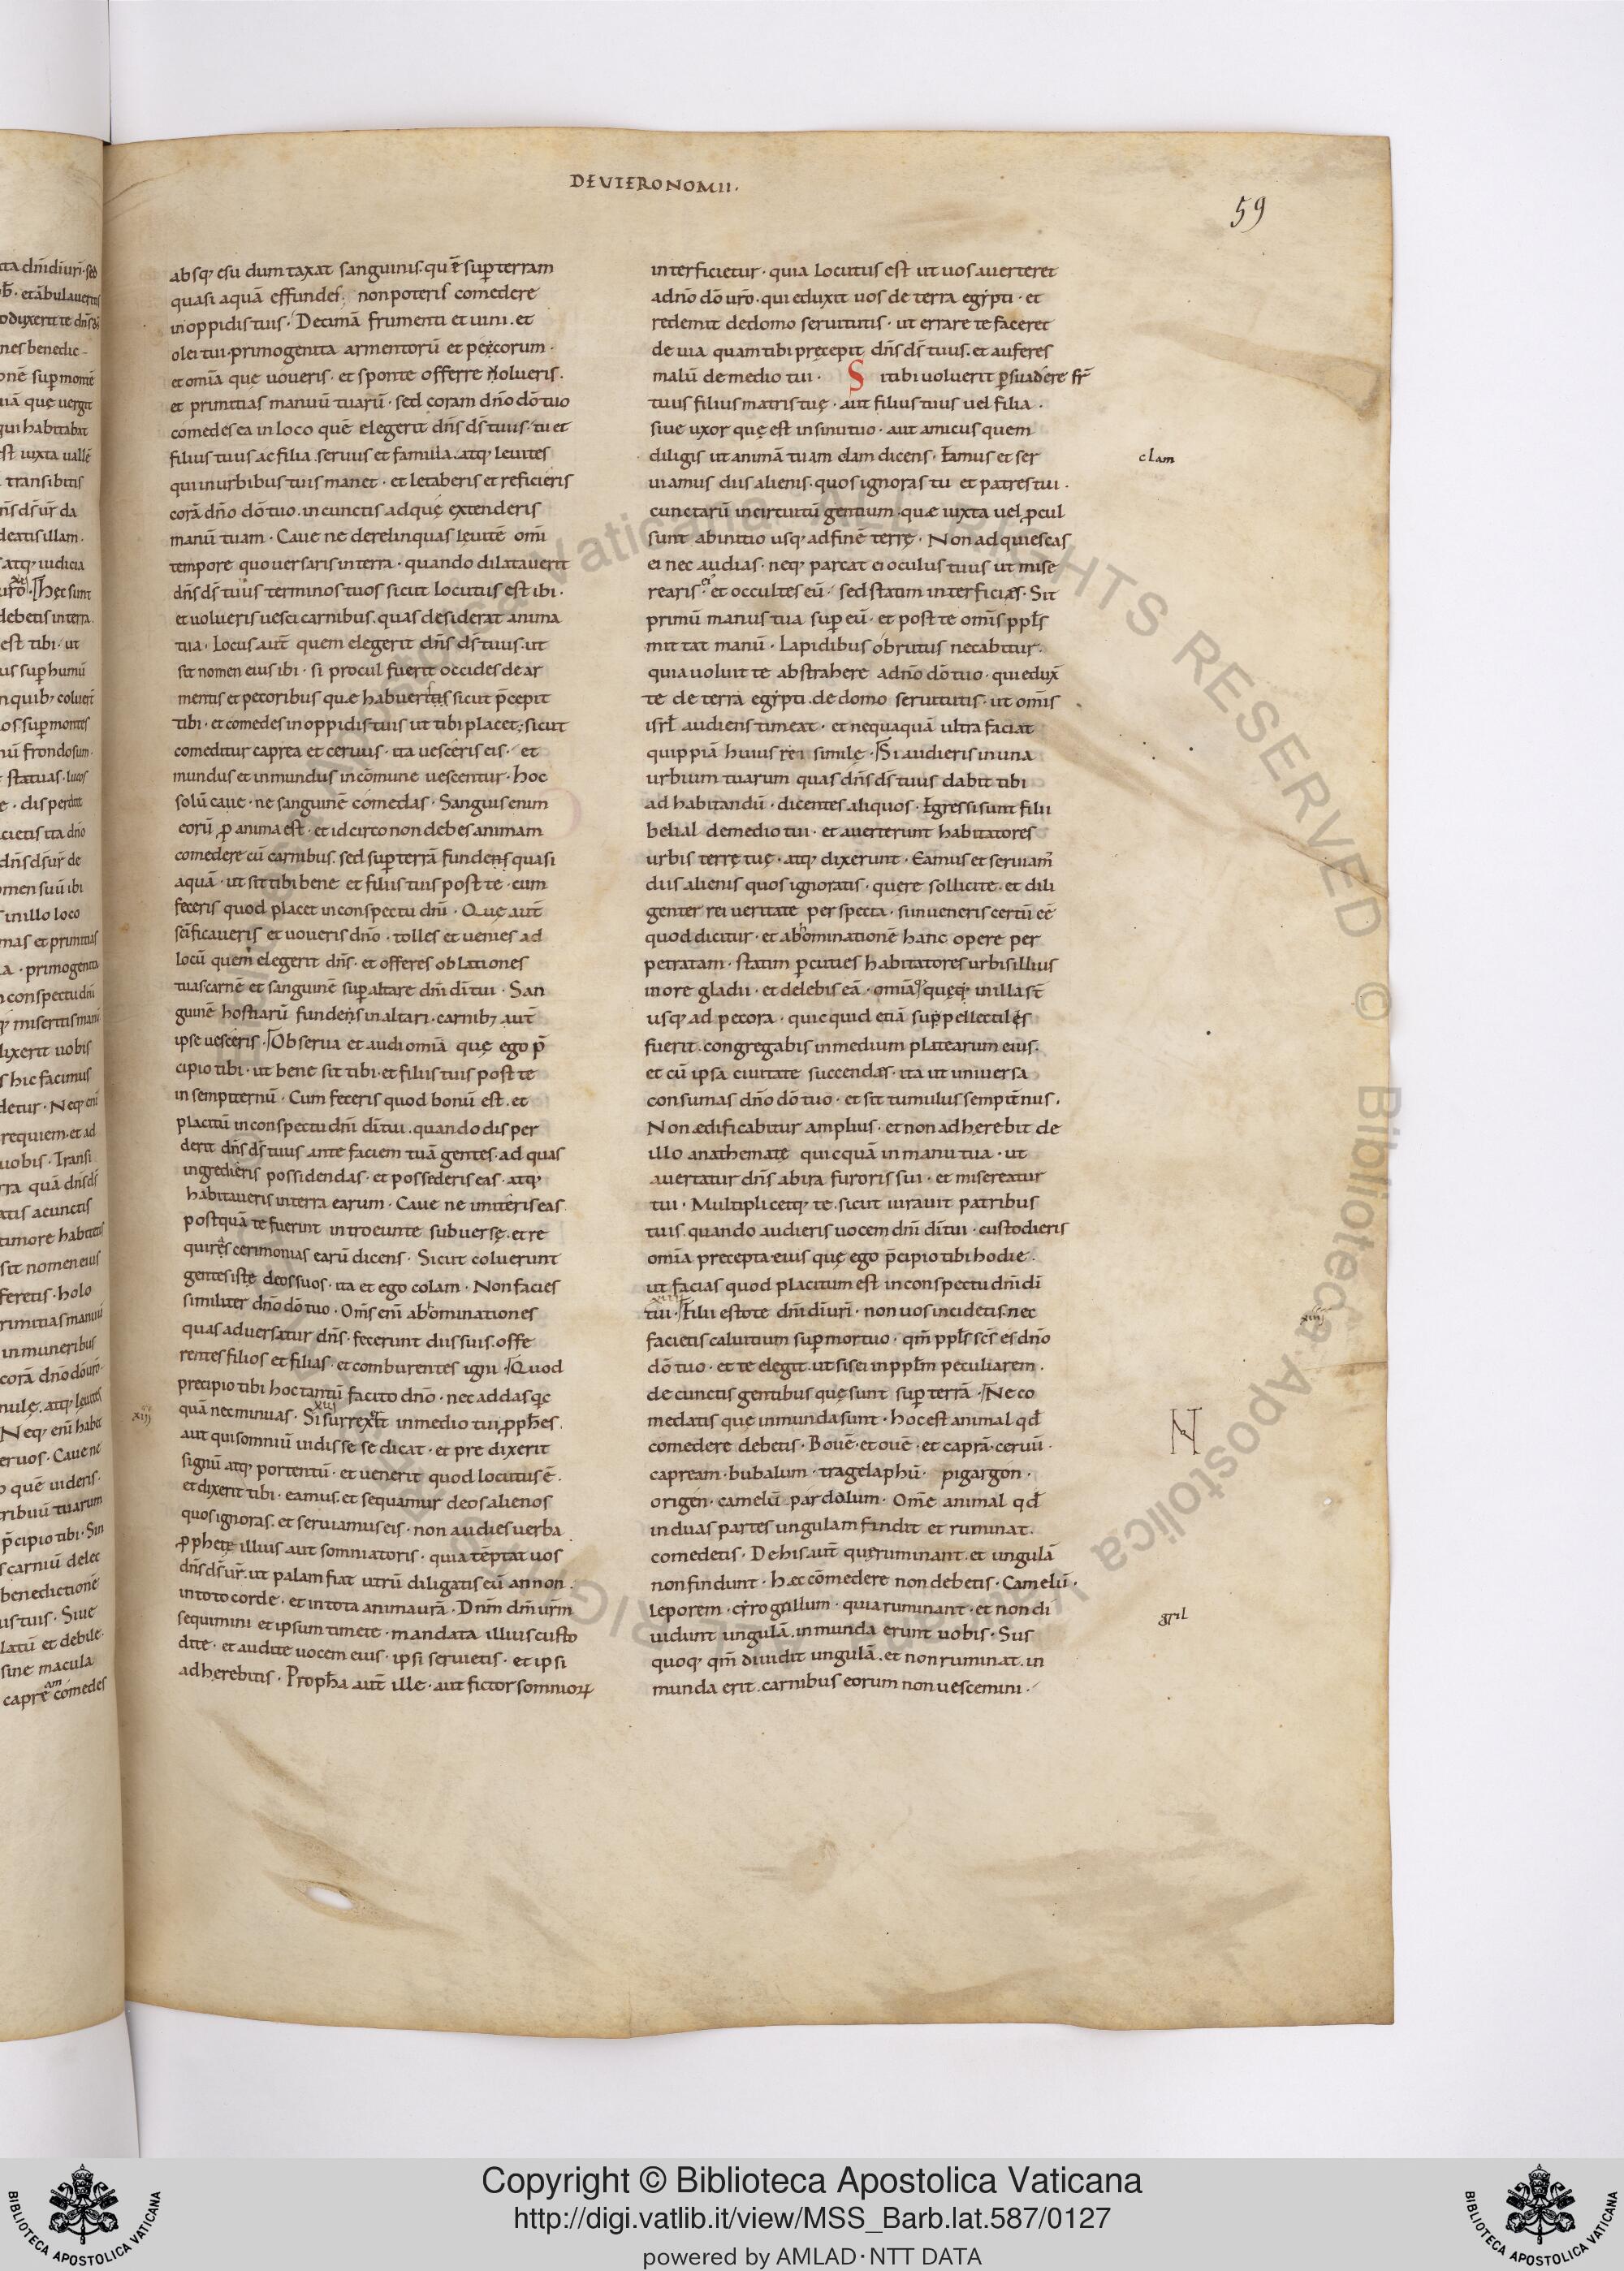 DEVTERONOMII·
59
absq; esu dumtaxat sanguinis. quẽ sup terram
quasi aquã effundes. non poteris comedere
in oppidis tuis. Decimã frumenti et uini. et
olei tui. primogenita armentorũ et pecorum.
et omĩa que uoueris. et sponte offerre uolueris.
et primitias manuũ tuarũ. sed coram dño dõ tuo
comedes ea in loco quẽ elegerit dñs ds̃ tuus. tu et
filius tuus ac filia. seruus et familia. atq; leuites
qui in urbibus tuis manet. et letaberis et reficieris
corã dño dõ tuo. in cunctis ad quę extenderis
manũ tuam. Caue ne derelinquas leuitẽ omĩ
tempore quo uersaris in terra. quando dilatauerit
dñs ds̃ tuus terminos tuos sicut locutus est ibi.
et uolueris uesci carnibus. quas desiderat anima
tua. Locus aut̃ quem elegerit dñs ds̃ tuus. ut
sit nomen eius ibi. si procul fuerit occides de ar
mentis et pecoribus quæ habueris sicut p̃cepit
tibi. et comedes in oppidis tuis ut tibi placet; sicut
comeditur caprea et ceruus. ita uesceris eis. et
mundus et inmundus in cõmune uescentur. hoc
solũ caue. ne sanguinẽ comedas. Sanguis enim
eorũ ꝓ anima est. et idcirco non debes animam
comedere cũ carnibus. sed sup terrã fundens quasi
aquã. ut sit tibi bene et filiis tuis post te. cum
feceris quod placet in conspectu dñi. Quę aut̃
scĩficaueris et uoueris dño. tolles et uenies ad
locũ quem elegerit dñs. et offeres oblationes
tuas carnẽ et sanguinẽ sup altare dñi dĩ tui. San
guinẽ hostiarũ fundens in altari. carnib; aut̃
ipse uesceris. Obserua et audi omĩa quę ego p̃
cipio tibi. ut bene sit tibi. et filiis tuis post te
in sempiternũ. Cum feceris quod bonũ est. et
placitũ in conspectu dñi dĩ tui. quando disper
derit dñs ds̃ tuus ante faciem tuã gentes. ad quas
ingredieris possidendas. et possederis eas. atq;
habitaueris in terra earum. Caue ne imiteris eas.
postquã te fuerint introeunte subuersę. et re
quires cerimonias earũ dicens. Sicut coluerunt
gentes istę deos suos. ita et ego colam. Non facies
similiter dño dõ tuo. Om̃s eñi abominationes
quas aduersatur dñs. fecerunt diis suis. offe
rentes filios et filias. et comburentes igni. Quod
precipio tibi hoc tantũ facito dño. nec addas qic
quã nec minuas. Si surrexerit in medio tui ꝓph̃es
xiij
xiij
aut qui somniũ uidisse se dicat. et predixerit
signũ atq; portentũ. et uenerit quod locutus ẽ.
et dixerit tibi. eamus. et sequamur deos alienos
quos ignoras. et seruiamus eis. non audies uerba
ꝓphetę illius aut somniatoris. quia tẽptat uos
dñs ds̃ ur̃. ut palam fiat utrũ diligatis eũ an non.
in toto corde. et in tota anima ur̃a. Dnm̃ dm̃ urm̃
sequimini et ipsum timete. mandata illius custo
dite. et audite uocem eius. ipsi seruietis. et ipsi
adherebitis. Proph̃a aut̃ ille. aut fictor somniorꝝ
interficietur. quia locutus est ut uos auerteret
a dño dõ ur̃o. qui eduxit uos de terra egipti. et
redemit de domo seruitutis. ut errare te faceret
de uia quam tibi pręcepit dñs ds̃ tuus. et auferes
malũ de medio tui. Si tibi uoluerit ꝑsuadere fr̃
tuus filius matris tuę. aut filius tuus uel filia.
siue uxor quę est in sinu tuo. aut amicus quem
diligis ut animã tuam clam dicens. Eamus et ser
clam
uiamus diis alienis. quos ignoras tu et patres tui.
cunctarũ in circuitũ gentium. quæ iuxta uel ꝓcul
sunt ab initio usq; ad finẽ terrę. Non adquiescas
ei nec audias. neq; parcat ei oculus tuus ut mise
rearis ei et occultes eũ. sed statim interficias. Sit
primũ manus tua sup eũ. et post te omĩs ppl̃s
mittat manũ. Lapidibus obrutus necabitur.
quia uoluit te abstrahere a dño dõ tuo. qui edux̃
te de terra egipti. de domo seruitutis. ut omĩs
isrl̃ audiens timeat. et nequaquã ultra faciat
quippiã huius rei simile. Si audieris in una
urbium tuarum quas dñs ds̃ tuus dabit tibi
ad habitandũ. dicentes aliquos. Egressi sunt filii
belial de medio tui. et auerterunt habitatores
urbis terrę tuę. atq; dixerunt. Eamus et seruiam̃
diis alienis quos ignoratis. quęre sollicite. et dili
genter rei ueritate perspecta. si inueneris certũ eẽ
quod dicitur. et abominationẽ hanc opere per
petratam. statim ꝑcuties habitatores urbis illius
in ore gladii. et delebis eã. omĩa quęq; in illa st̃
usq; ad pecora. quicquid etiã suppellectiles
fuerit. congregabis in medium platearum eius.
et cũ ipsa ciuitate succendas. ita ut uniuersa
consumas dño dõ tuo. et sit tumulus sempit̃nus.
Non ædificabitur amplius. et non adherebit de
illo anathemate quicquã in manu tua. ut
auertatur dñs ab ira furoris sui. et misereatur
tui. Multiplicetq; te. sicut iurauit patribus
tuis. quando audieris uocem dñi dĩ tui. custodieris
omĩa precepta eius quę ego p̃cipio tibi hodie.
ut facias quod placitum est in conspectu dñi dĩ
tui. Filii estote dñi dĩ uri. non uos incidetis. nec
xiiii
facietis caluitium sup mortuo. qm̃ ppl̃s scs̃ es dño
dõ tuo. et te elegit. ut sis ei in ppl̃m peculiarem.
de cunctis gentibus quę sunt sup terrã. Ne co
medatis quę inmunda sunt. hoc est animal qd̃
N
comedere debetis. Bouẽ. et ouẽ. et caprã. ceruũ.
capream. bubalum. tragelaphũ. pigargon.
origen. camelũ pardalum. Om̃e animal qd̃
in duas partes ungulam findit et ruminat.
comedetis. De his aut̃ quę ruminant. et ungulã
non findunt. hæc cõmedere non debetis. Camelũ.
leporem. cirogrillum. quia ruminant. et non di
gril
uidunt ungulã. inmunda erunt uobis. Sus
quoq; qm̃ diuidit ungulã. et non ruminat. in
munda erit. carnibus eorum non uescemini.
Copyright © Biblioteca Apostolica Vaticana
http://digi.vatlib.it/view/MSS_Barb.lat.587/0127
powered by AMLAD·NTT DATA
BIBLIOTECA APOSTOLICA VATICANA
BIBLIOTECA APOSTOLICA VATICANA